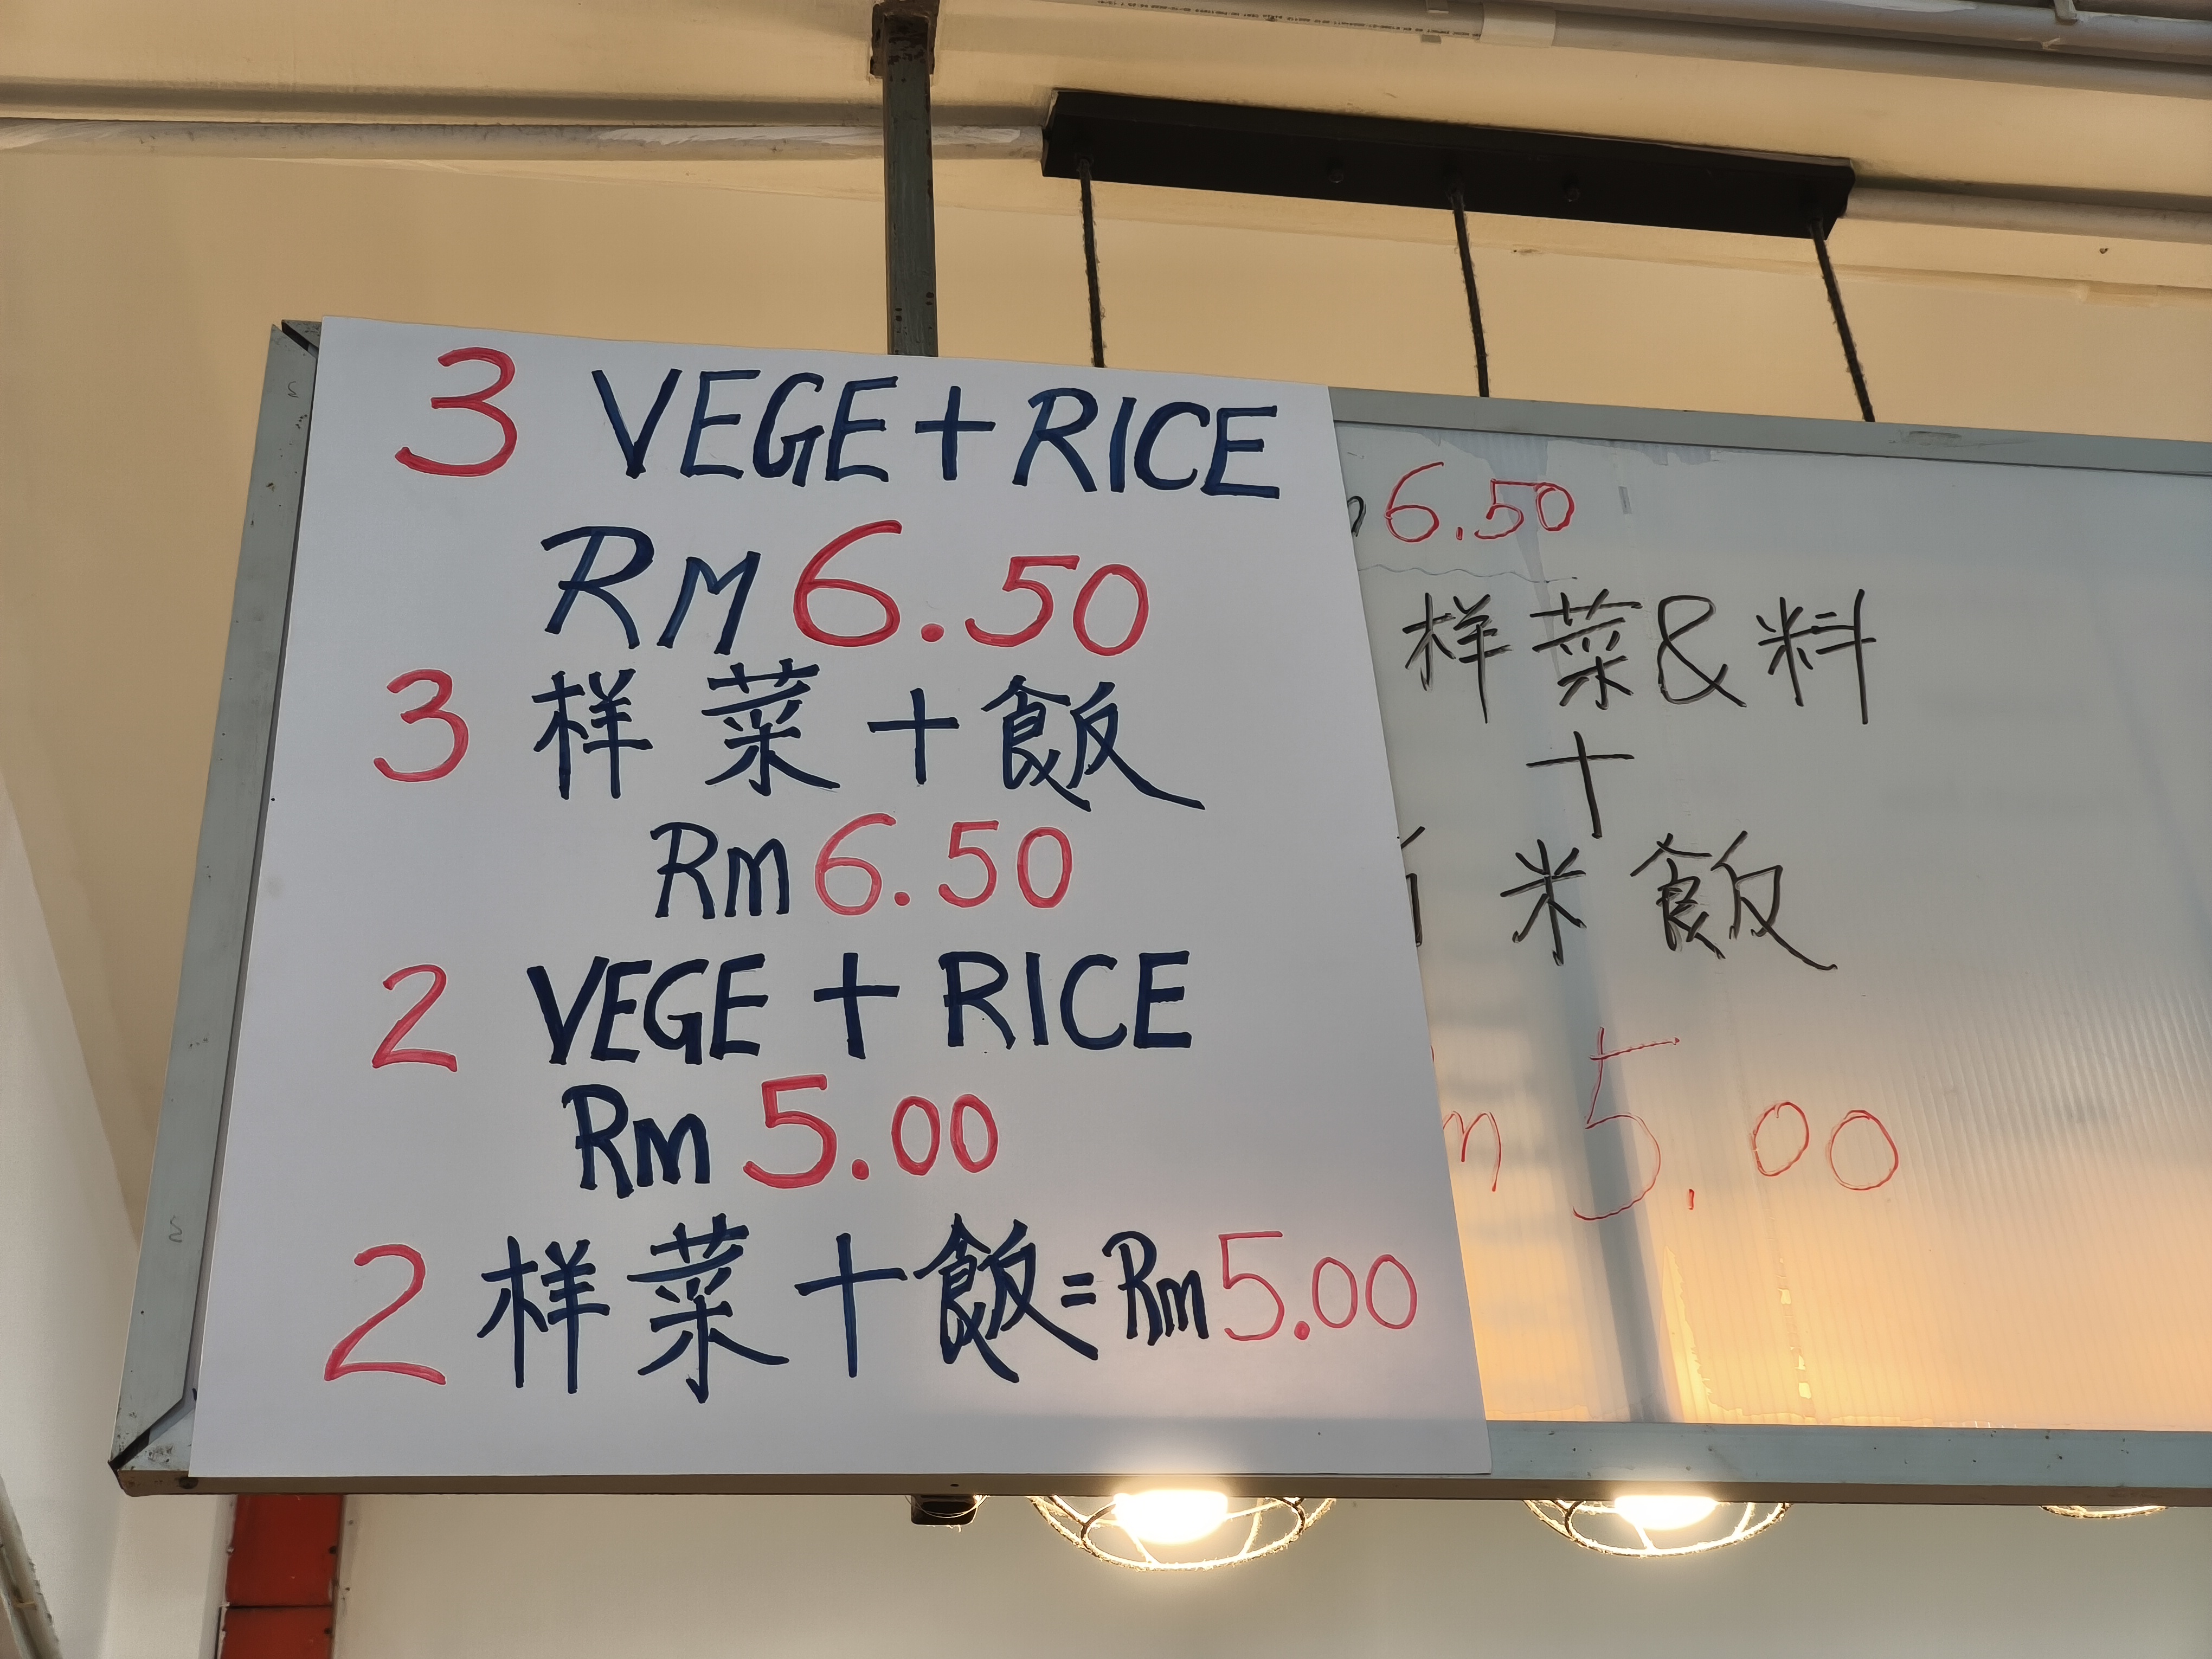 3 VEGE+RICE
RM 6.50
3 样 菜 + 飯
Rm 6.50
2 VEGE + RICE
Rm 5.00
2 样 菜 + 飯 = Rm 5.00
6.50
样 菜 & 料
+
米 飯
m 5.00